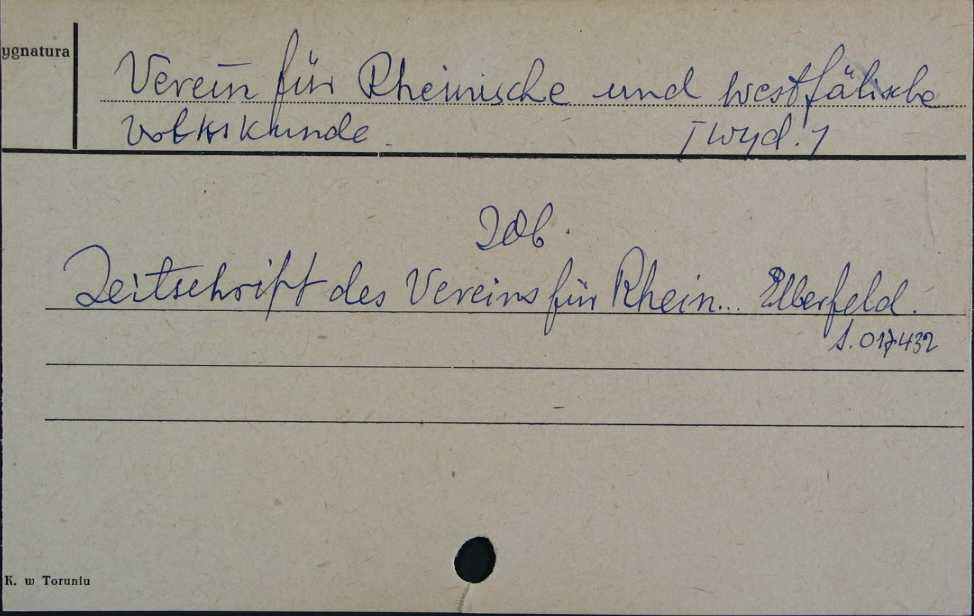 ygnatura
Verein für Rheinische und westfälische
Volkskunde. [wyd.]
Zob.
Zeitschrift des Vereins für Rhein... Elberfeld.
S. 017432
K. w Toruniu